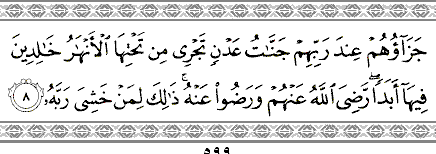 جَزَآؤُهُمْ عِندَ رَبِّهِمْ جَنَّٰتُ عَدْنٍ تَجْرِى مِن تَحْتِهَا ٱلْأَنْهَٰرُ خَٰلِدِينَ
فِيهَآ أَبَدًا ۖ رَّضِىَ ٱللَّهُ عَنْهُمْ وَرَضُوا۟ عَنْهُ ۚ ذَٰلِكَ لِمَنْ خَشِىَ رَبَّهُۥ ٨
٥٩٩